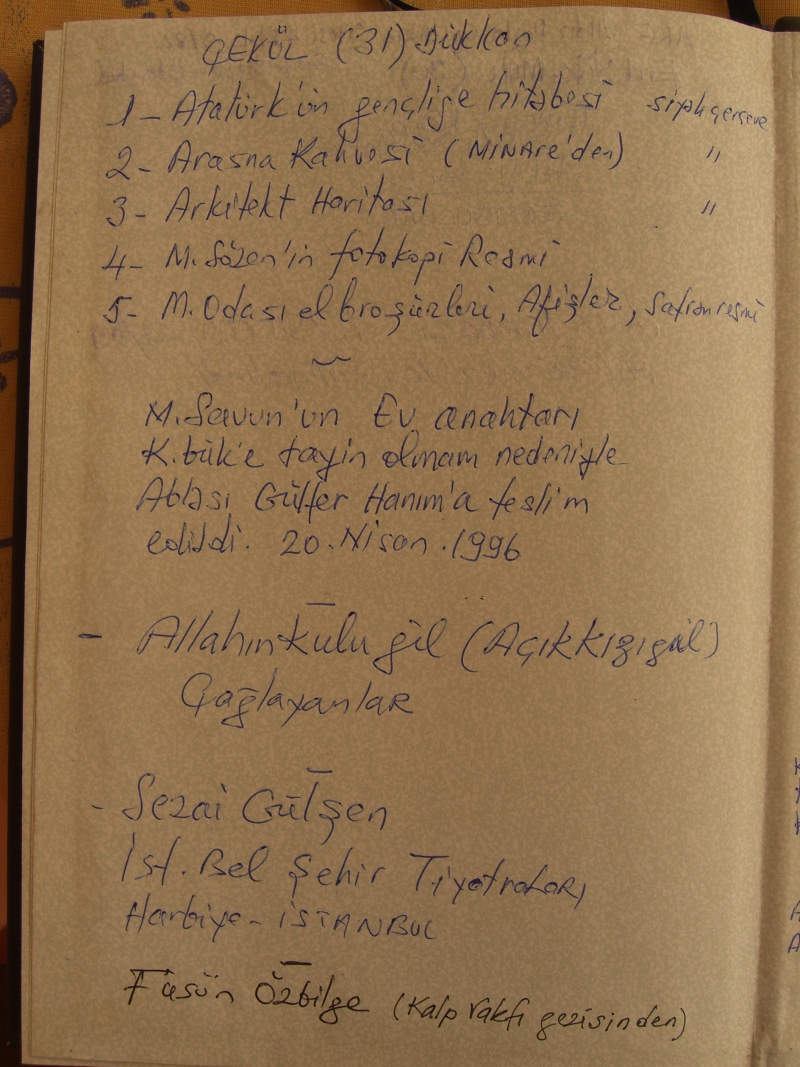 ÇEKÜL (31) Dükkan
1- Atatürk'ün gençliğe hitabesi siyah çerçeve
2- Arasna Kahvesi (MİNAre'den) "
3- Arkitekt Haritası "
4- M. Sözen'in fotokopi Resmi
5- M. Odası el broşürleri, Afişler, Safran resmi
M. Savun'un Ev anahtarı
K.bük'e tayin olmam nedeniyle
Ablası Gülfer Hanım'a teslim
edildi. 20.Nisan.1996
- Allahınkulugil (Açıkkızıgil)
Çağlayanlar
- Sezai Gülşen
İst. Bel Şehir Tiyatroları
Harbiye - İSTANBUL
Füsün Özbilge (Kalp Vakfı gezisinden)